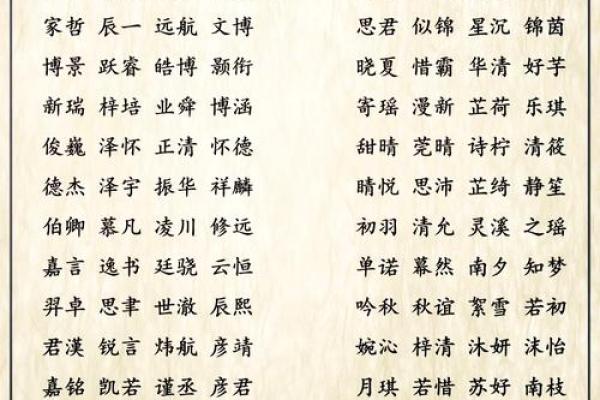 家哲 辰一 远航 文博 思君 似锦 星沉 锦茵
博景 跃睿 皓博 颢衔 晓夏 惜霸 华清 好芋
新瑞 梓培 业舜 博涵 寄瑶 漫新 芷荷 乐琪
俊巍 泽怀 正清 怀德 甜晴 莞晴 诗柠 清筱
德杰 泽宇 振华 祥麟 晴悦 思沛 芷绮 静笙
伯卿 慕凡 凌川 修远 初羽 清允 灵溪 之瑶
嘉言 逸书 廷骁 云恒 单诺 暮然 南夕 知梦
羿卓 思聿 世澈 辰熙 吟秋 秋谊 絮雪 若初
君漠 锐言 炜航 彦靖 婉沁 梓清 沐妍 沫怡
嘉铭 凯若 谨丞 彦君 月琪 若惜 苏好 南枝